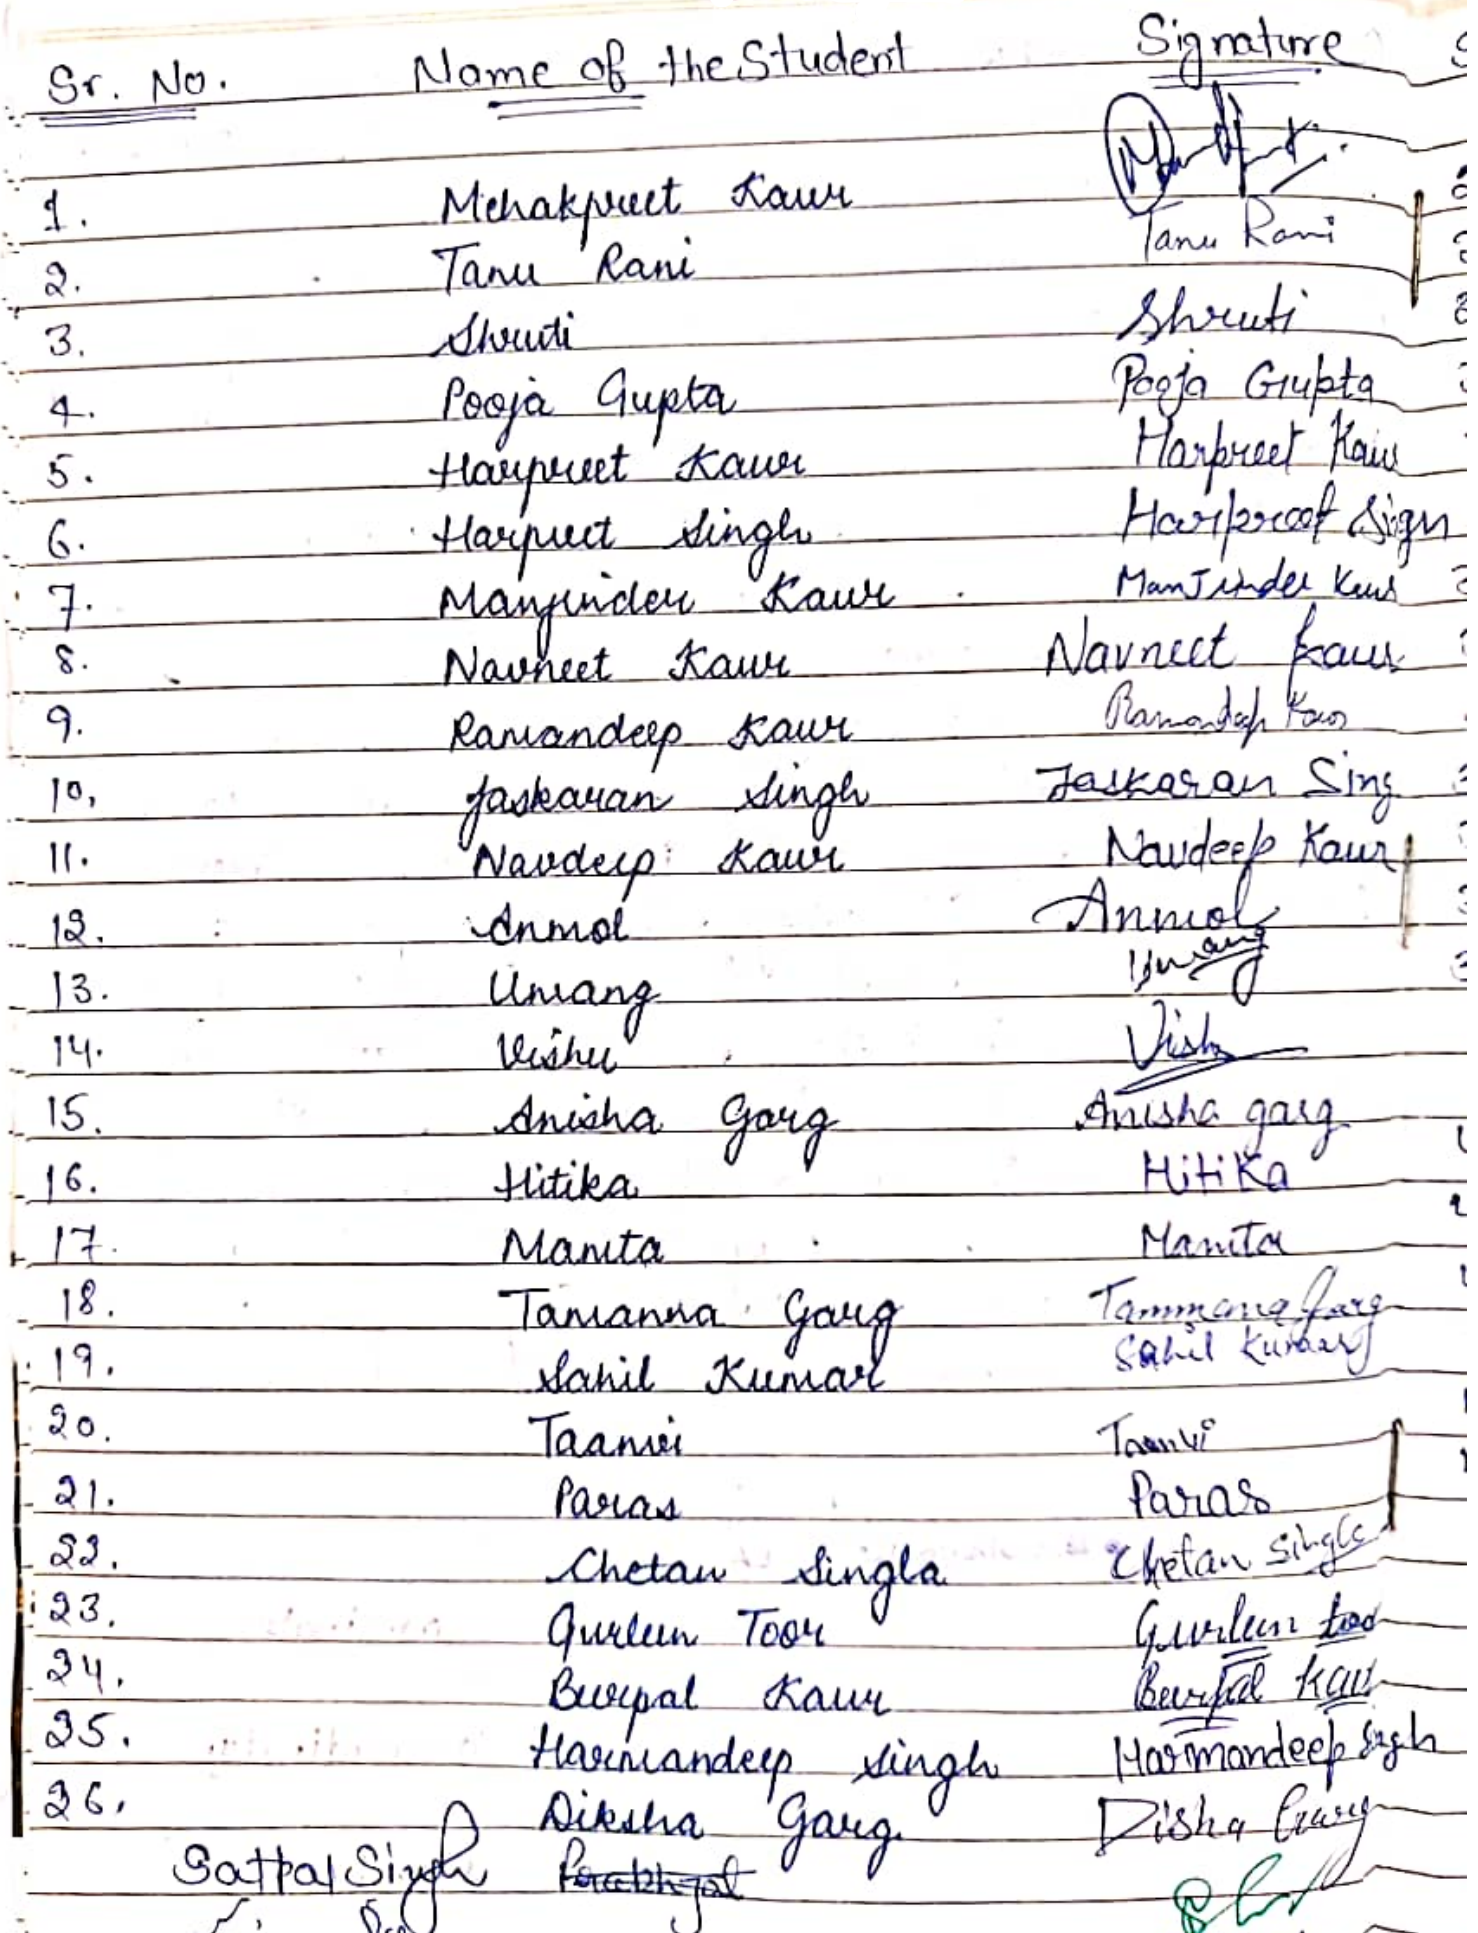 Sr. No. Name of the Student Signature
1. Mehakpreet Kaur
2. Tanu Rani Tanu Rani
3. Shruti Shruti
4. Pooja Gupta Pooja Gupta
5. Harpreet Kaur Harpreet Kaur
6. Harpreet Singh Harpreet Sign
7. Manjinder Kaur Manjinder Kaur
8. Navneet Kaur Navneet Kaur
9. Ramandeep Kaur Ramandeep Kaur
10. Jaskaran Singh Jaskaran Sing
11. Navdeep Kaur Navdeep Kaur
12. Anmol Anmol
13. Umang Umang
14. Vishu Vishu
15. Anisha Garg Anisha garg
16. Hitika Hitika
17. Mamta Mamta
18. Tamanna Garg Tammana Garg
19. Sahil Kumar Sahil Kumar
20. Taanvi Taanvi
21. Paras Paras
22. Chetan Singla Chetan Singla
23. Gurleen Toor Gurleen toor
24. Beerpal Kaur Beerpal Kaur
25. Harmandeep Singh Harmandeep Singh
26. Diksha Garg Disha Garg
Satpal Singh